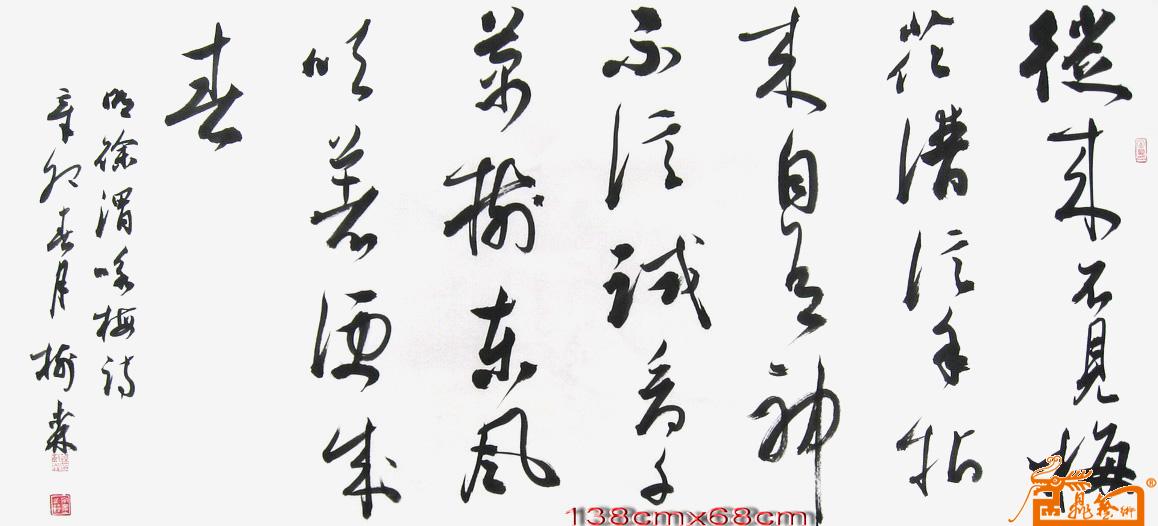 從来不見梅
花譜信手拈
来自有神
不信試看千
萬樹东風
吹着便成
春
明徐渭咏梅诗
辛卯春月樹森
138cmx68cm